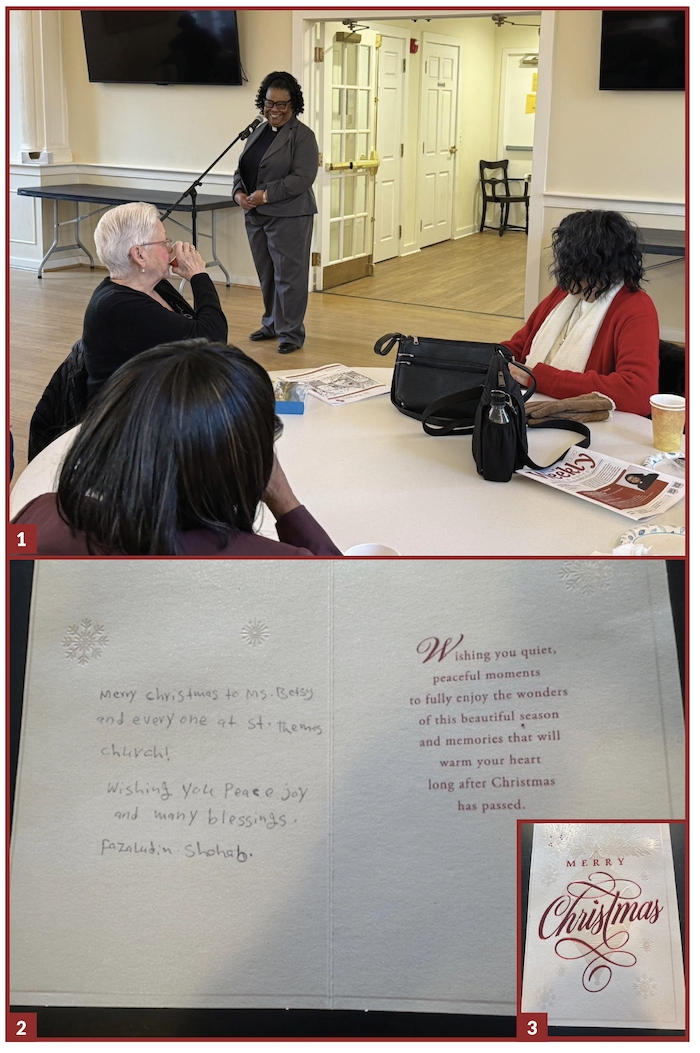 Weekly
1
Merry christmas to Ms. Betsy
and every one at st. themos
church!
Wishing you Peace joy
and many blessings.
Fazaludin. Shohab.
Wishing you quiet,
peaceful moments
to fully enjoy the wonders
of this beautiful season
and memories that will
warm your heart
long after Christmas
has passed.
2
MERRY
Christmas
3